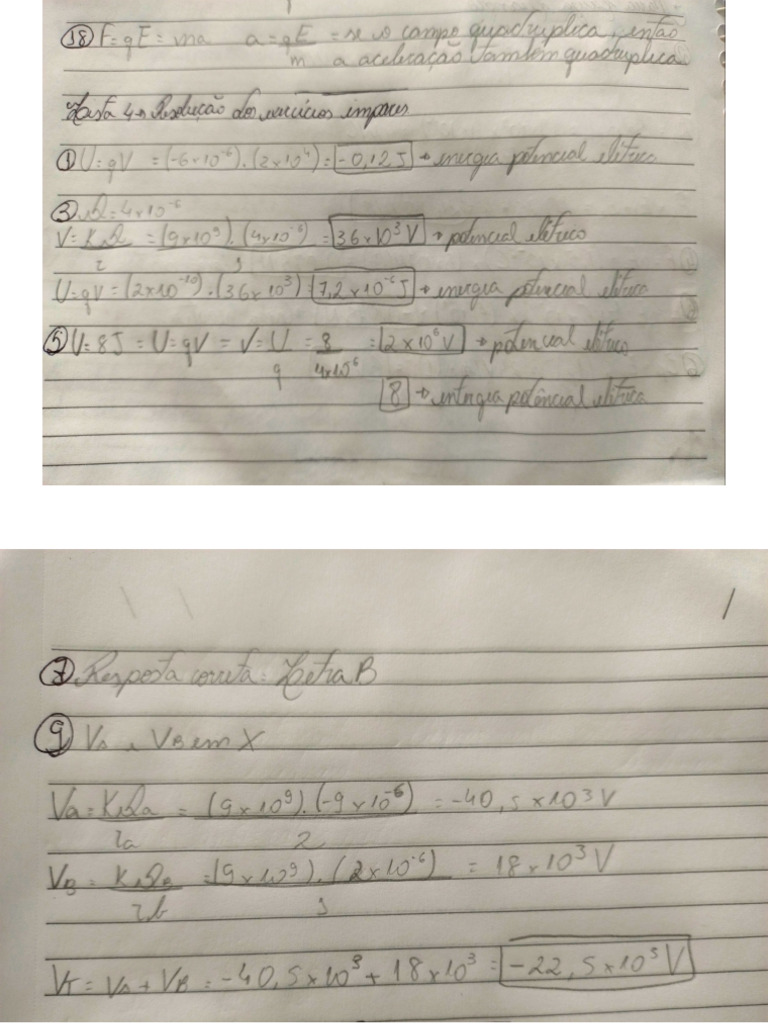 18 F=qE=ma a=qE/m =se o campo quadruplica, então
a aceleração também quadruplica.
Lista 4→ Resolução dos exercícios ímpares
1 U=qV = (-6×10^-6).(2×10^4)= -0,12J → energia potencial elétrica
3 Q=4×10^-6
V=KQ/r = (9×10^9).(4×10^-6)/1 = 36×10^3 V → potencial elétrico
U=qV=(2×10^-10).(36×10^3)=7,2×10^-6J → energia potencial elétrica
5 U=8J = U=qV = V=U/q = 8/4×10^-6 = 2×10^6 V → potencial elétrico
8 → energia potencial elétrica
7 Resposta correta: Letra B
9 VA e VB em X
Va=KQa/ra = (9×10^9).(-9×10^-6)/2 = -40,5×10^3 V
VB = KQB/rb =(9×10^9).(2×10^-6)/1 = 18×10^3 V
VT= VA+VB = -40,5×10^3+18×10^3 = -22,5×10^3 V